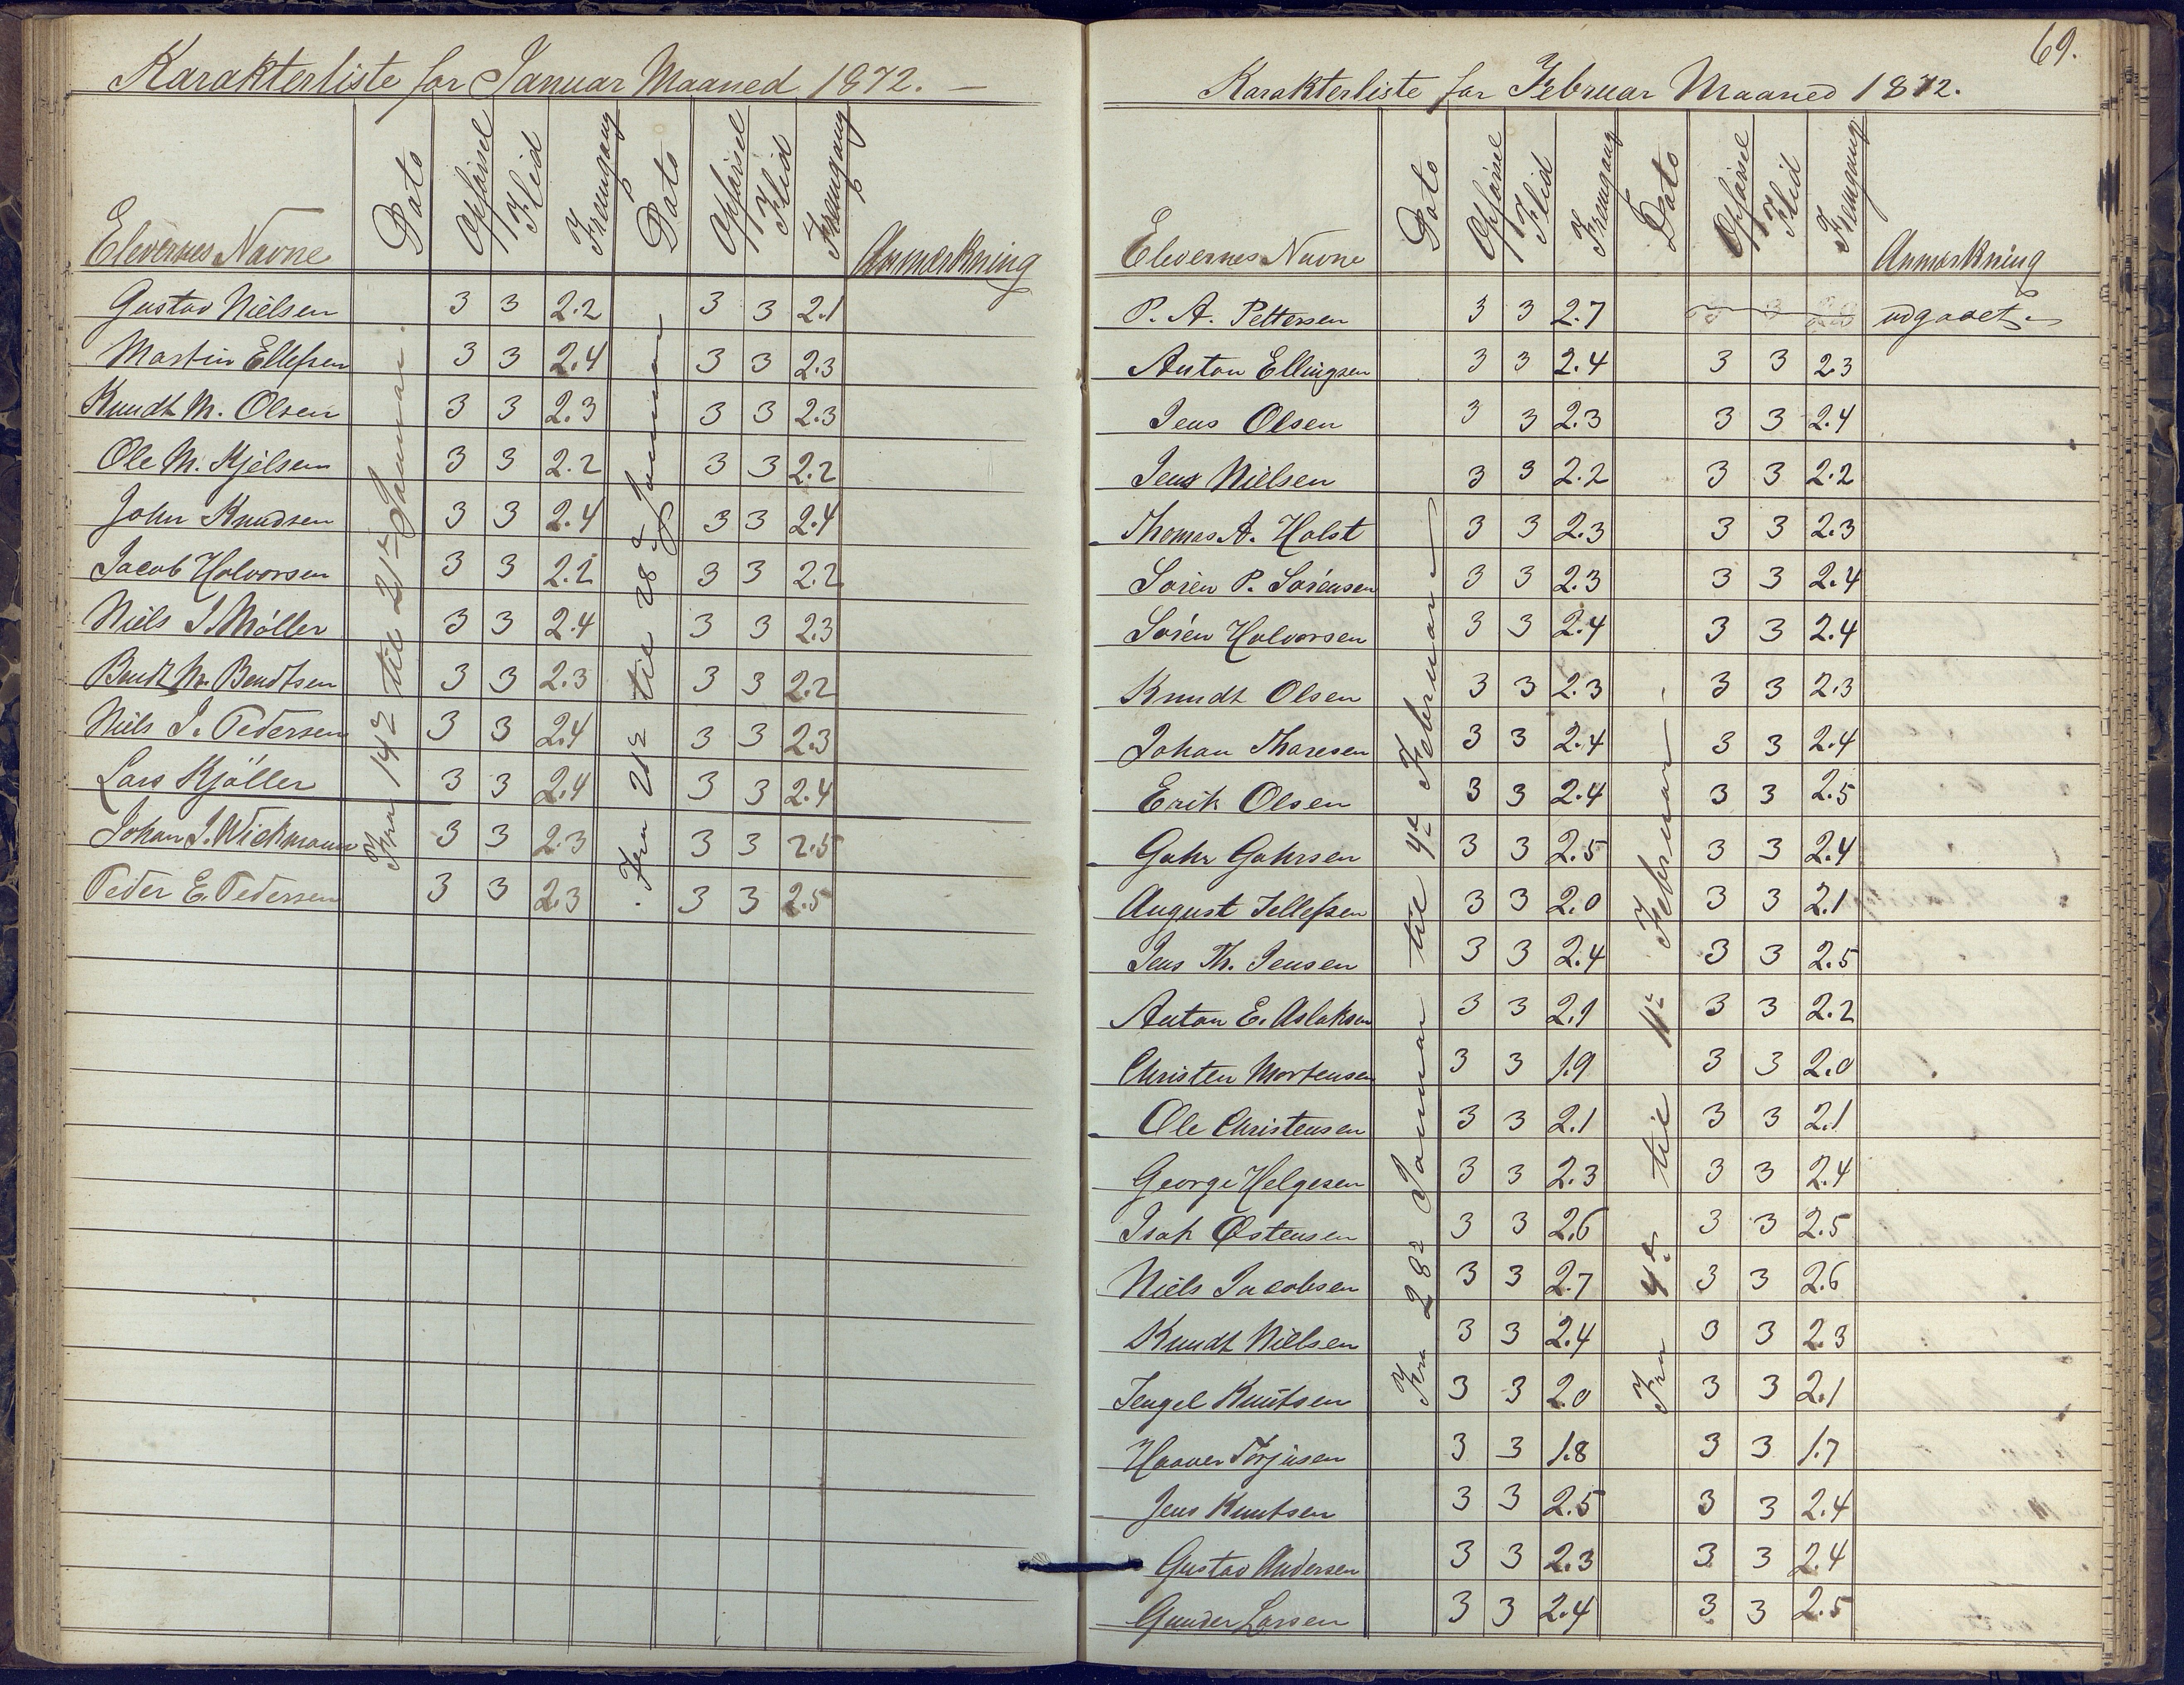 Karakterliste for Januar Maaned 1872. —
Elevernes Navne Dato Opførsel Flid Fremgang Dato Opførsel Flid Fremgang Anmærkning
Fra 14de til 21de Januar.
Fra 21de til 28de Januar
Gustav Nielsen 3 3 2.2 3 3 2.1
Martin Ellefsen 3 3 2.4 3 3 2.3
Knudt M. Olsen 3 3 2.3 3 3 2.3
Ole M. Kjelsen 3 3 2.2 3 3 2.2
John Knudsen 3 3 2.4 3 3 2.4
Jacob Halvorsen 3 3 2.2 3 3 2.2
Niels J. Møller 3 3 2.4 3 3 2.3
Bendt M. Bendtsen 3 3 2.3 3 3 2.2
Niels J. Pedersen 3 3 2.4 3 3 2.3
Lars Kjøller 3 3 2.4 3 3 2.4
Johan J. Wickmann 3 3 2.3 3 3 2.5
Peder E. Pedersen 3 3 2.3 3 3 2.5
69.
Karakterliste for Februar Maaned 1872.
Elevernes Navne Dato Opførsel Flid Fremgang Dato Opførsel Flid Fremgang Anmærkning
Fra 28de Januar til 4de Februar
Fra 4de til 11te Februar
P. A. Pettersen 3 3 2.7 3 3 2.8 udgaaet
Anton Ellingsen 3 3 2.4 3 3 2.3
Jens Olsen 3 3 2.3 3 3 2.4
Jens Nielsen 3 3 2.2 3 3 2.2
Thomas A. Holst 3 3 2.3 3 3 2.3
Søren P. Sørensen 3 3 2.3 3 3 2.4
Søren Halvorsen 3 3 2.4 3 3 2.4
Knudt Olsen 3 3 2.3 3 3 2.3
Johan Thoresen 3 3 2.4 3 3 2.4
Erik Olsen 3 3 2.4 3 3 2.5
Gahr Gahrsen 3 3 2.5 3 3 2.4
August Tellefsen 3 3 2.0 3 3 2.1
Jens Th. Jensen 3 3 2.4 3 3 2.5
Anton E. Aslaksen 3 3 2.1 3 3 2.2
Christen Mortensen 3 3 1.9 3 3 2.0
Ole Christensen 3 3 2.1 3 3 2.1
George Helgesen 3 3 2.3 3 3 2.4
Isak Østensen 3 3 2.6 3 3 2.5
Niels Jacobsen 3 3 2.7 3 3 2.6
Knudt Nielsen 3 3 2.4 3 3 2.3
Tengel Knutsen 3 3 2.0 3 3 2.1
Haaver Torjusen 3 3 1.8 3 3 1.7
Jens Knutsen 3 3 2.5 3 3 2.4
Gustav Andersen 3 3 2.3 3 3 2.4
Gunder Larsen 3 3 2.4 3 3 2.5